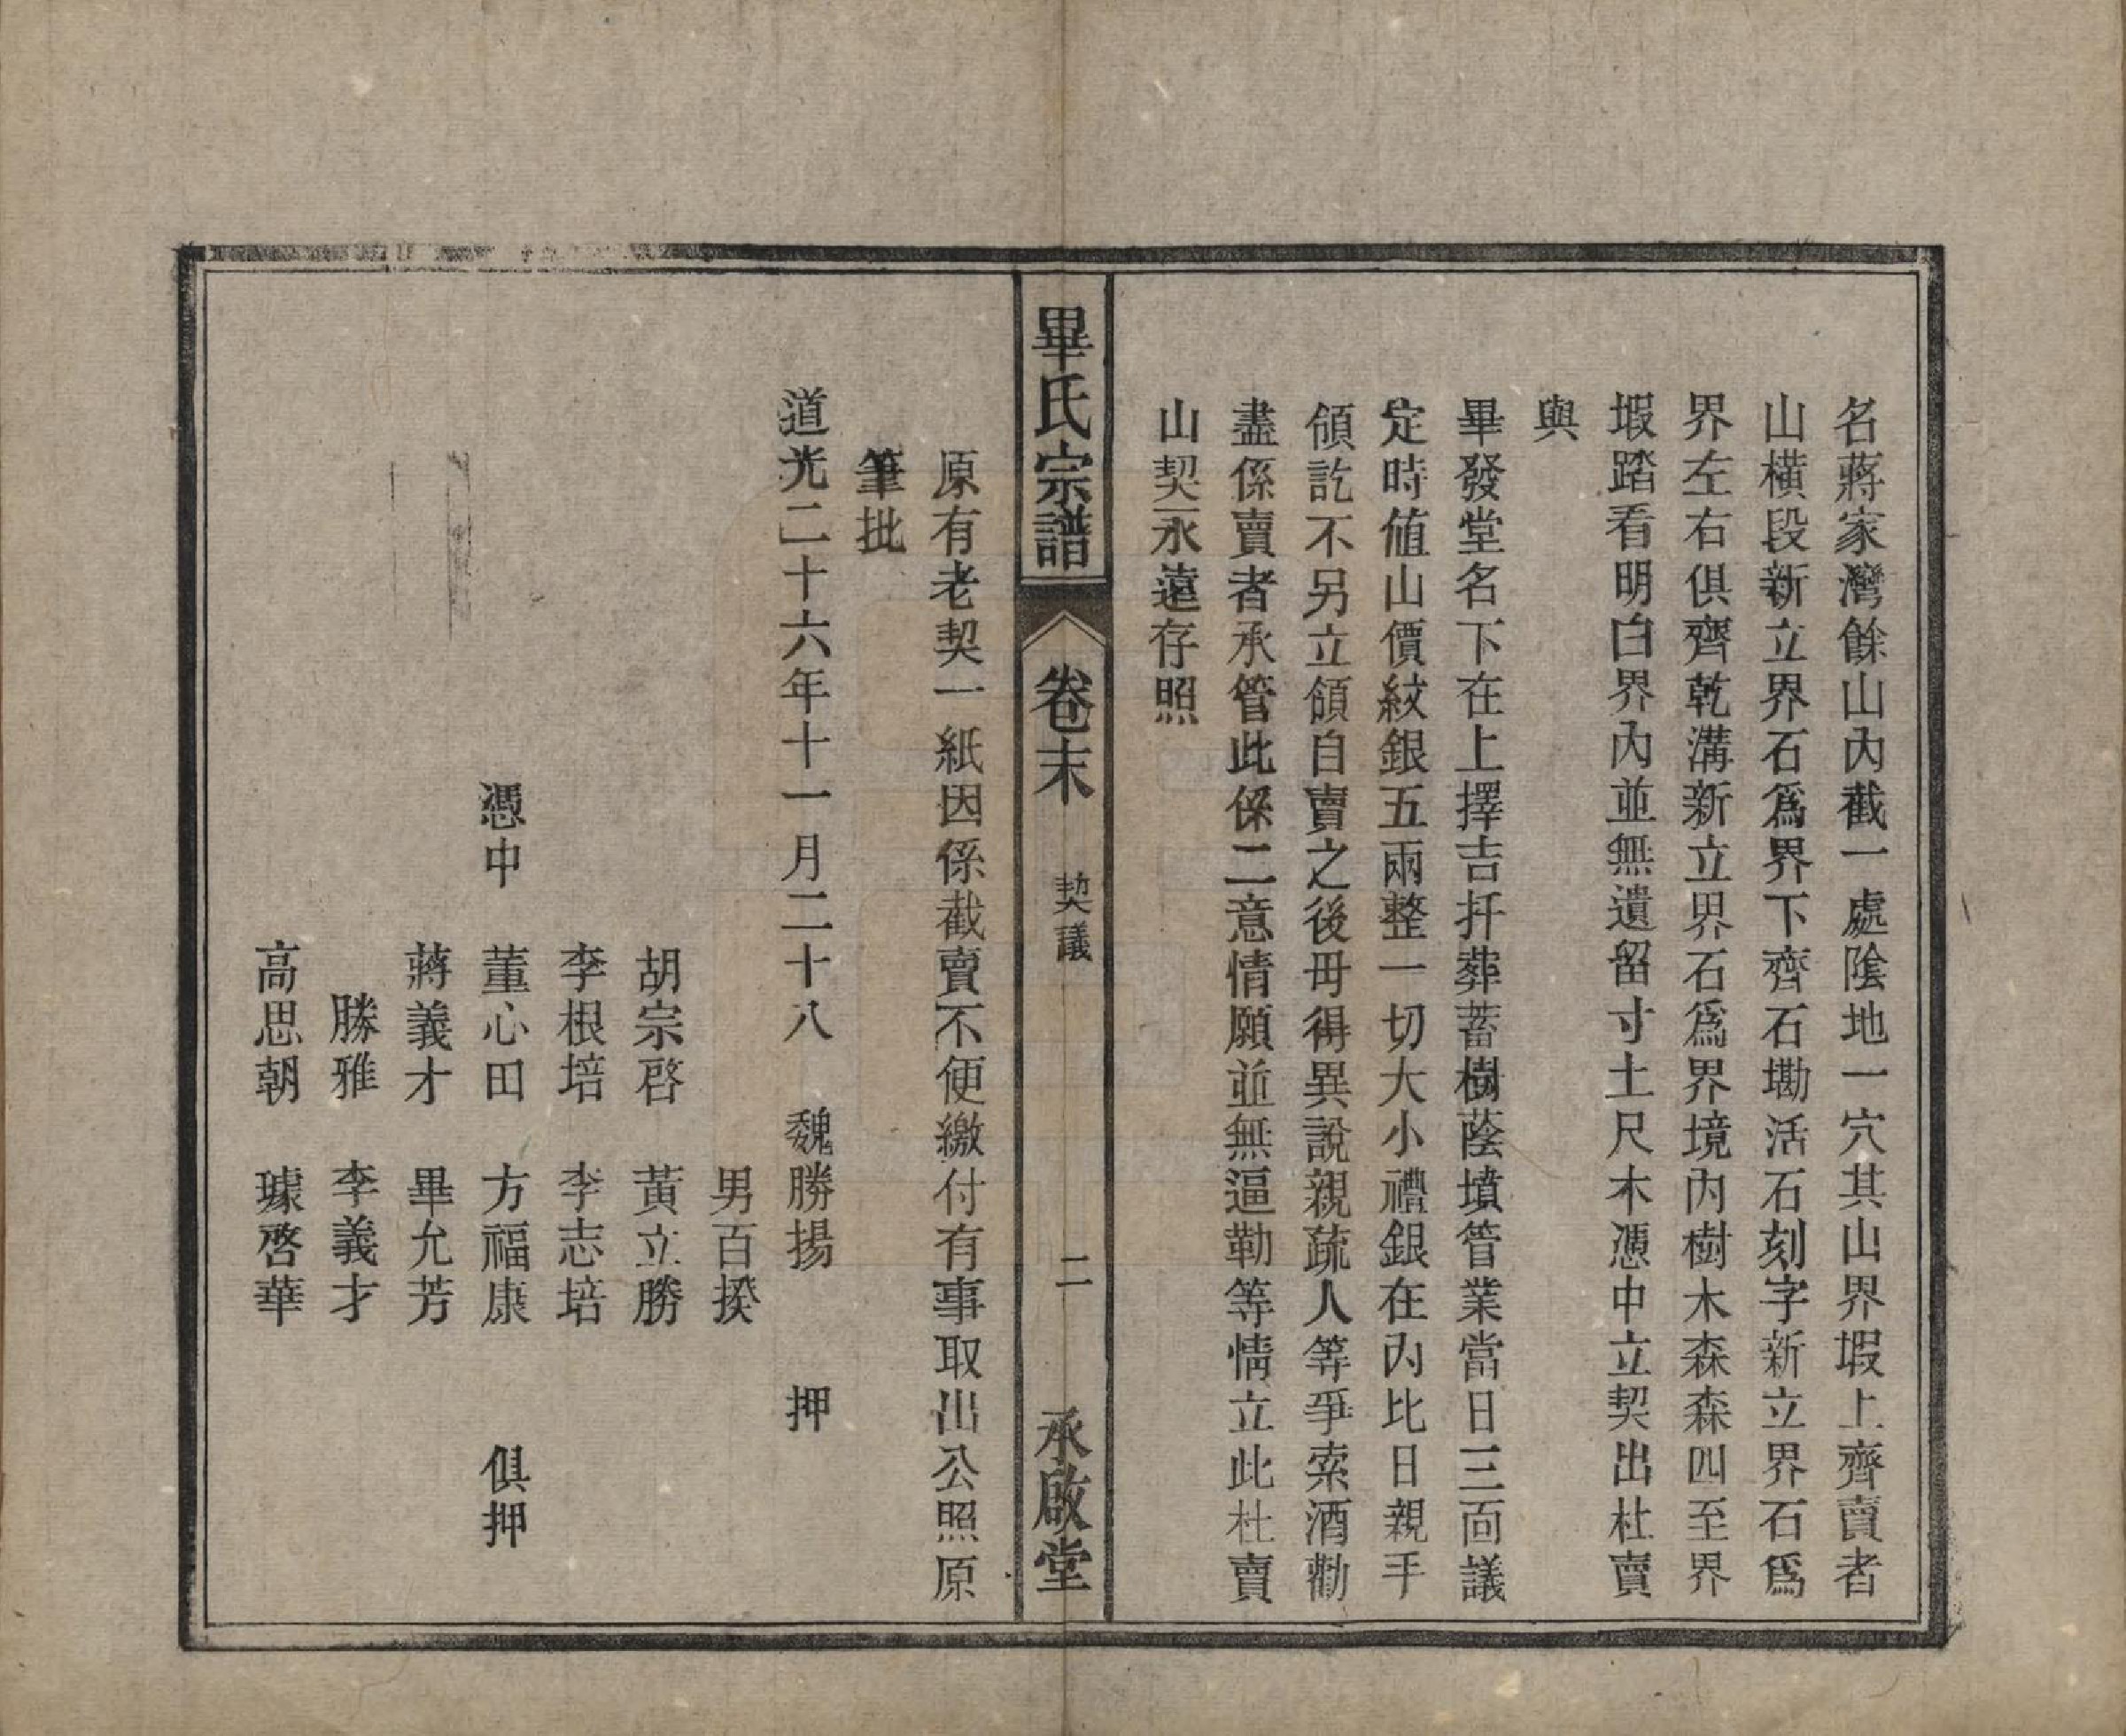 名蔣家灣餘山內截一處陰地一穴其山界塅上齊賣者
山橫段新立界石爲界下齊石墈活石刻字新立界石爲
界左右俱齊乾溝新立界石爲界境內樹木森森四至界
塅踏看明白界內並無遺留寸土尺木憑中立契出杜賣
與
畢發堂名下在上擇吉扦葬蓄樹蔭墳管業當日三面議
定時値山價紋銀五兩整一切大小禮銀在內比日親手
領訖不另立領自賣之後毋得異說親疏人等爭索酒勸
盡係賣者承管此係二意情願並無逼勒等情立此杜賣
山契永遠存照
畢氏宗譜 卷末 契議 二 承啟堂
原有老契一紙因係截賣不便繳付有事取出公照原
筆批
道光二十六年十一月二十八 魏勝揚 押
男百揆
胡宗啓 黃立勝
李根培 李志培
憑中 董心田 方福康 俱押
蔣義才 畢允芳
勝雅 李義才
高思朝 璩啓華